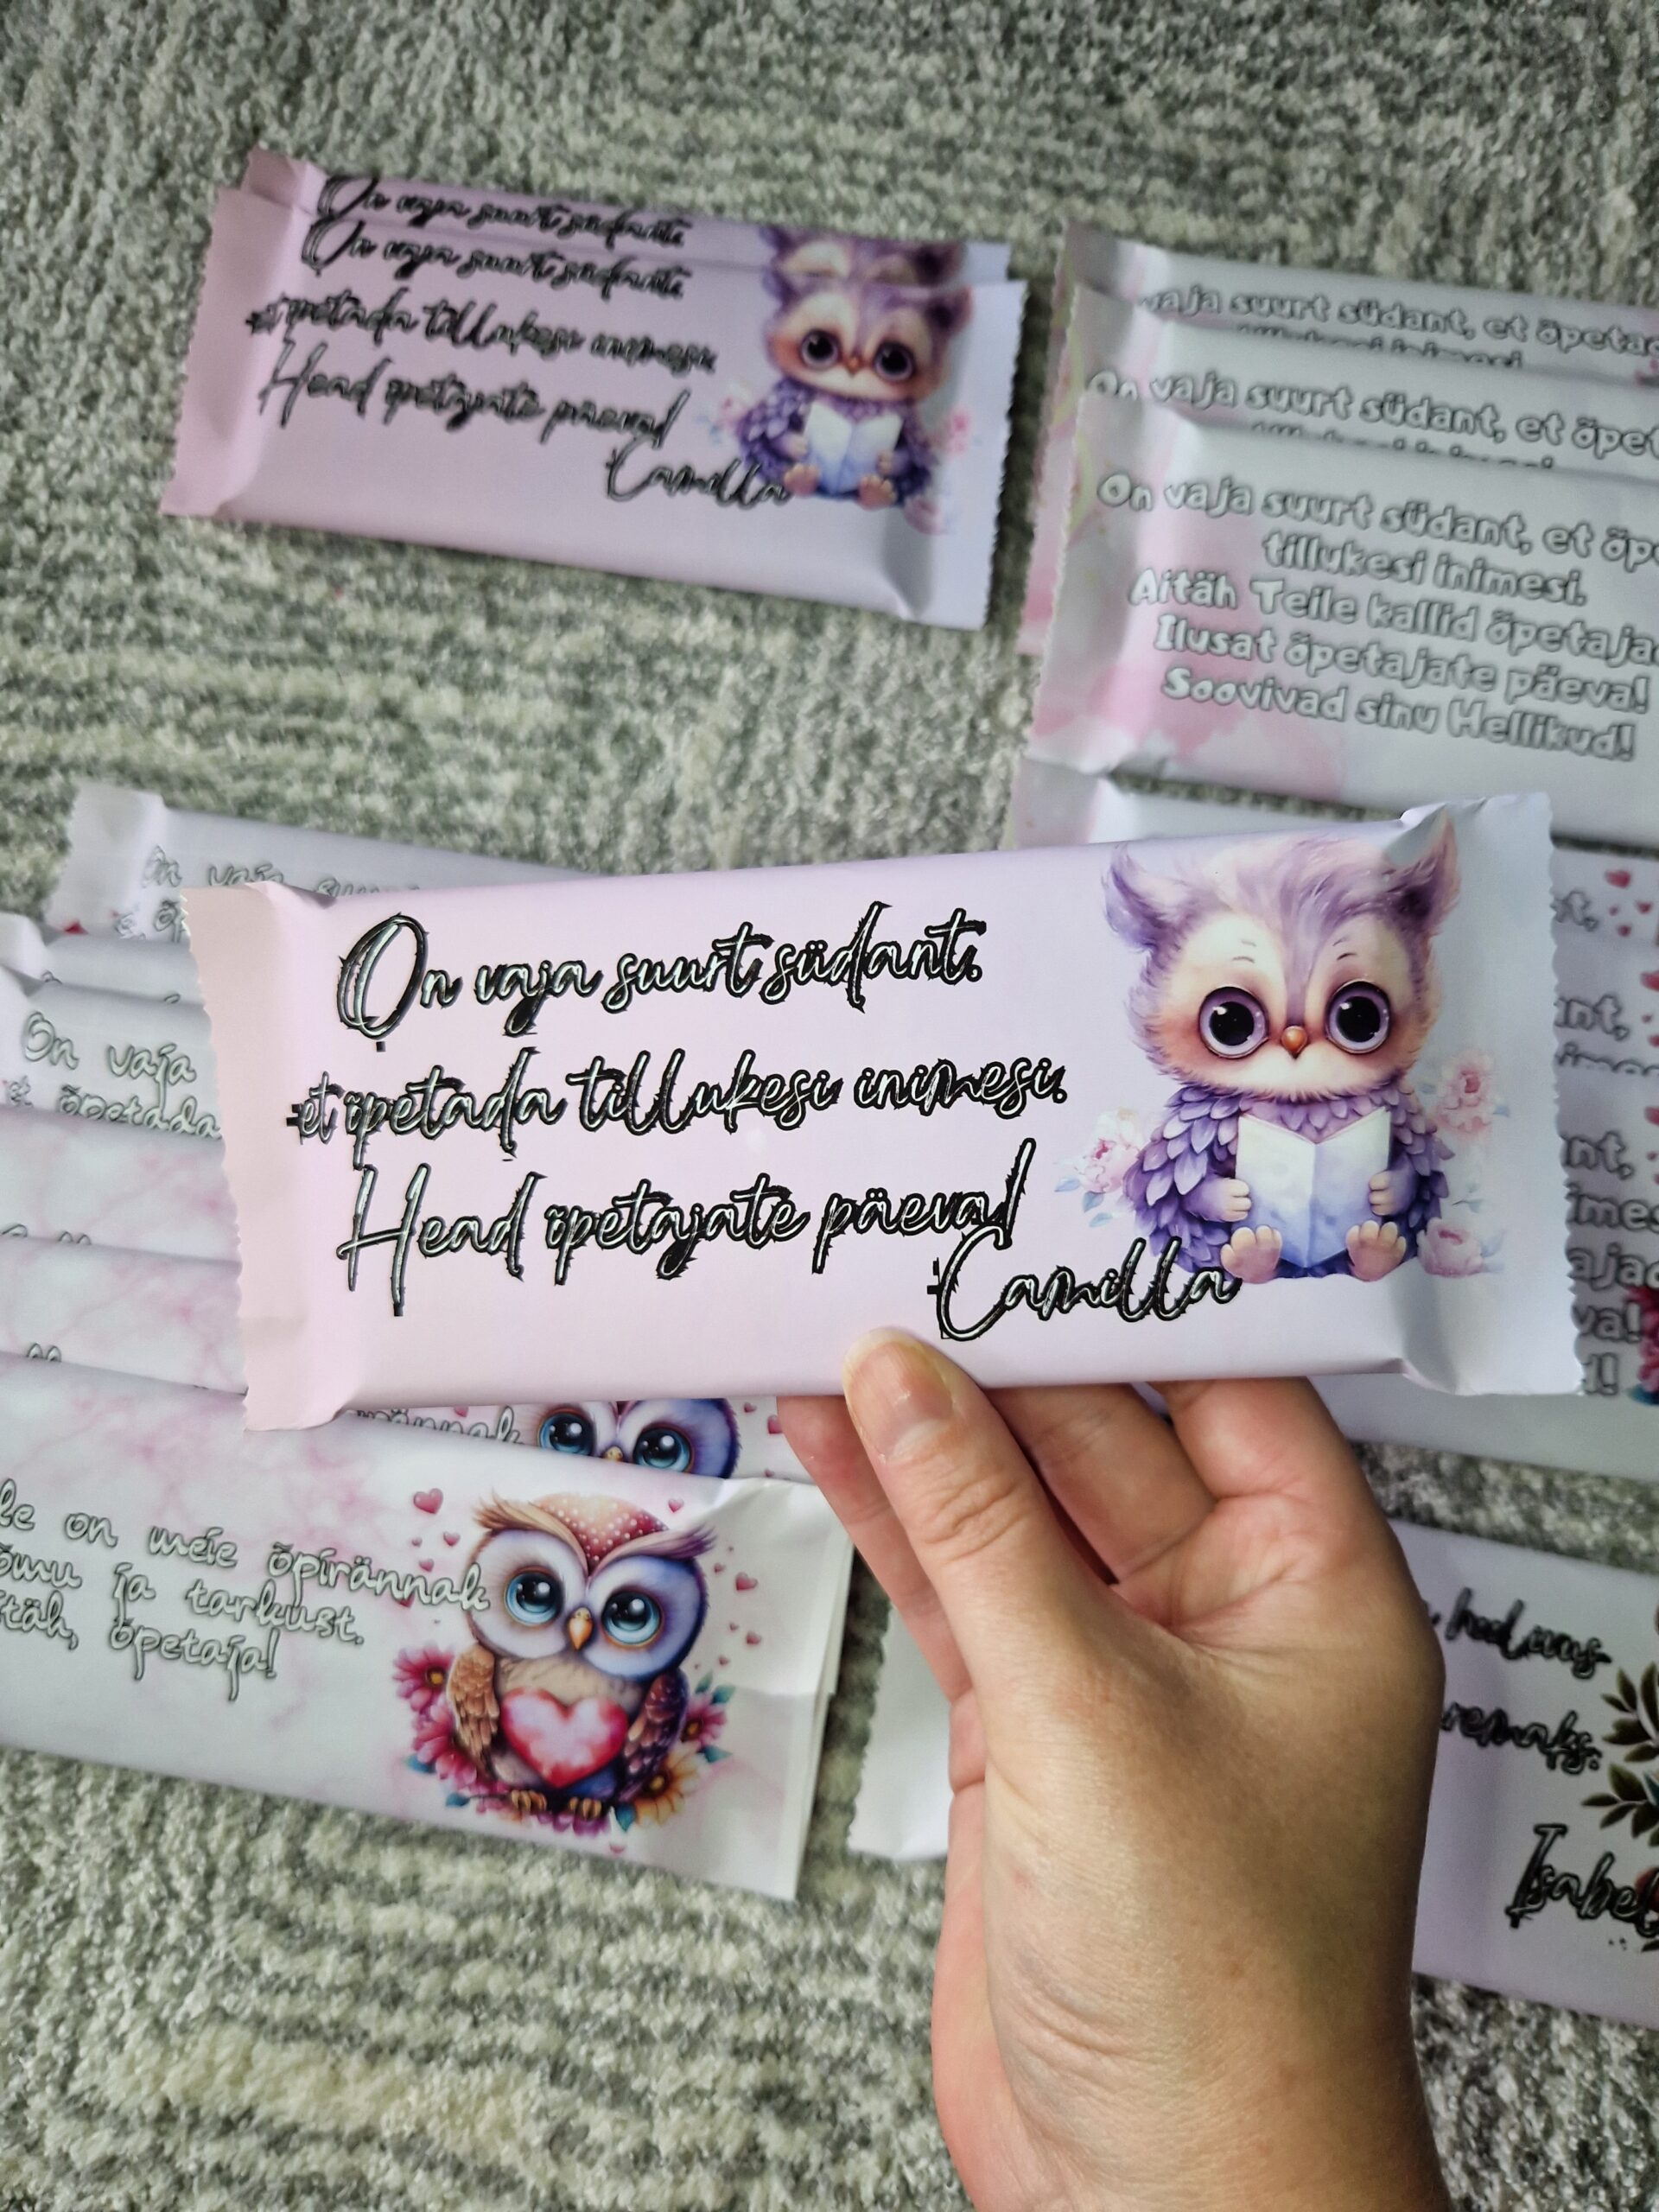 On vaja suurt südant
On vaja suurt südant
et õpetada tillukesi inimesi.
Head õpetajate päeva!
Camilla
vaja suurt südant, et õpetad
tillukesi inimesi.
On vaja suurt südant, et õpet
On vaja suurt südant, et õpe
tillukesi inimesi.
Aitäh Teile kallid õpetajad
Ilusat õpetajate päeva!
Soovivad sinu Hellikud!
On vaja suurt südant,
et õpetada tillukesi inimesi.
Head õpetajate päeva!
Camilla
On vaja
et õpetada
on meie õpirännak
ja tarkust.
õpetaja!
õpirännak
Isabel